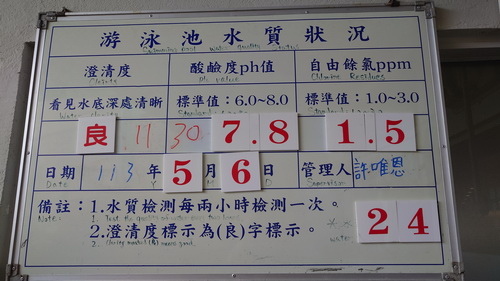 游泳池水質狀況
Swimming pool water quality Status
澄清度 酸鹼度ph值 自由餘氯ppm
Clarity Ph value Chlorine Residues
看見水底深處清晰 標準值：6.0~8.0 標準值：1.0~3.0
良 11 30 7.8 1.5
日期 113 年 5 月 6 日 管理人 許唯恩
Date
備註：1.水質檢測每兩小時檢測一次。
Note:
2.澄清度標示為(良)字標示。
24
water